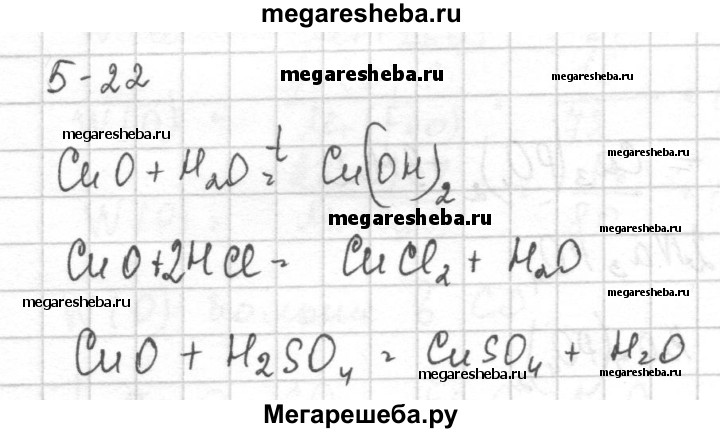 megaresheba.ru
5-22
megaresheba.ru megaresheba.ru
megaresheba.ru
CuO + H2O =t Cu(OH)2
megaresheba.ru megaresheba.ru
CuO + 2HCl = CuCl2 + H2O
megaresheba.ru megaresheba.ru
CuO + H2SO4 = CuSO4 + H2O
megaresheba.ru megaresheba.ru
Мегарешеба.ру